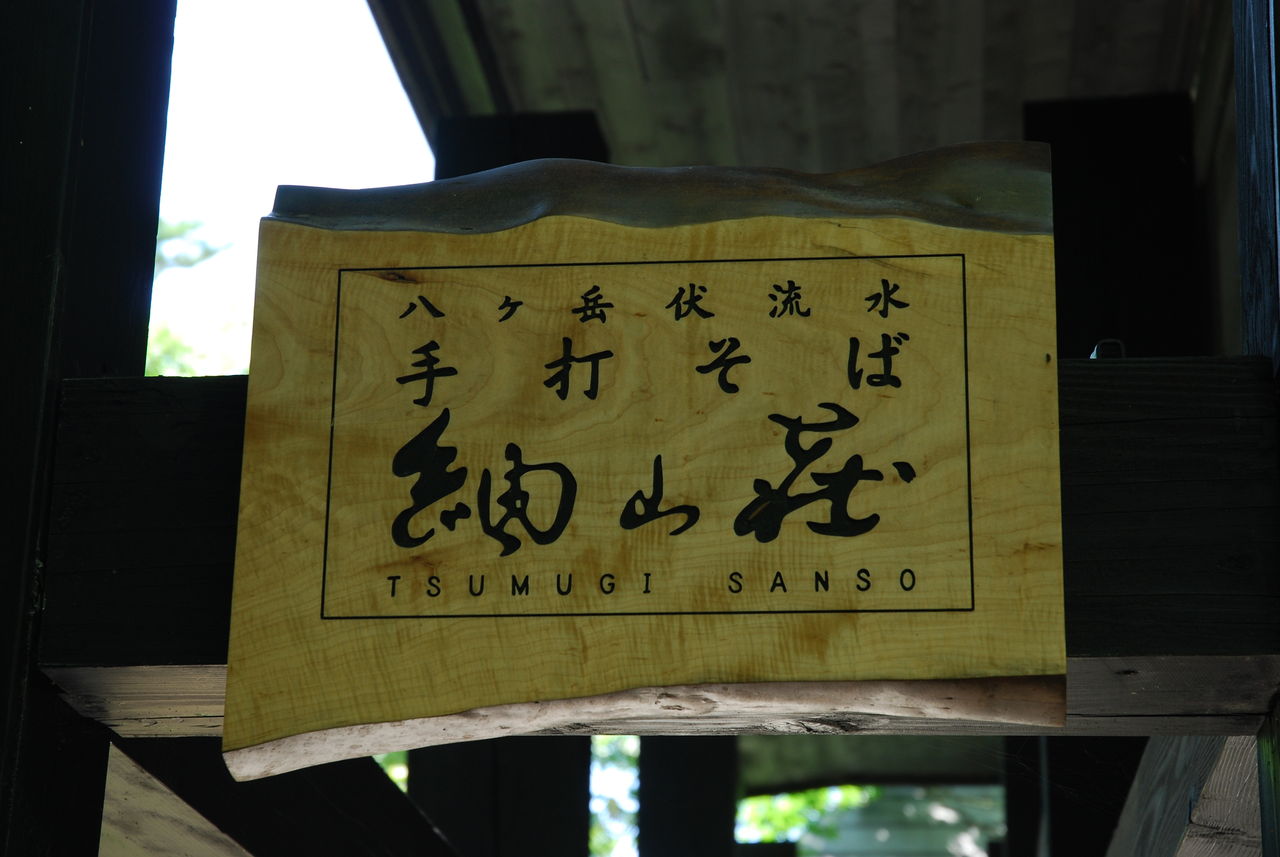 八ヶ岳伏流水
手打そば
紬山荘
TSUMUGI SANSO